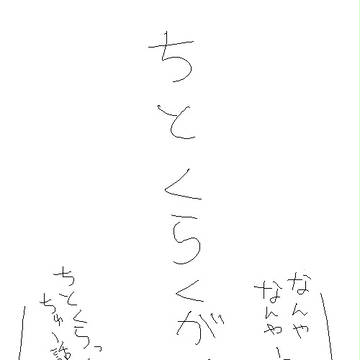 ちとくらくが
なんや
なんや
ちとくらっ
ちゅう話